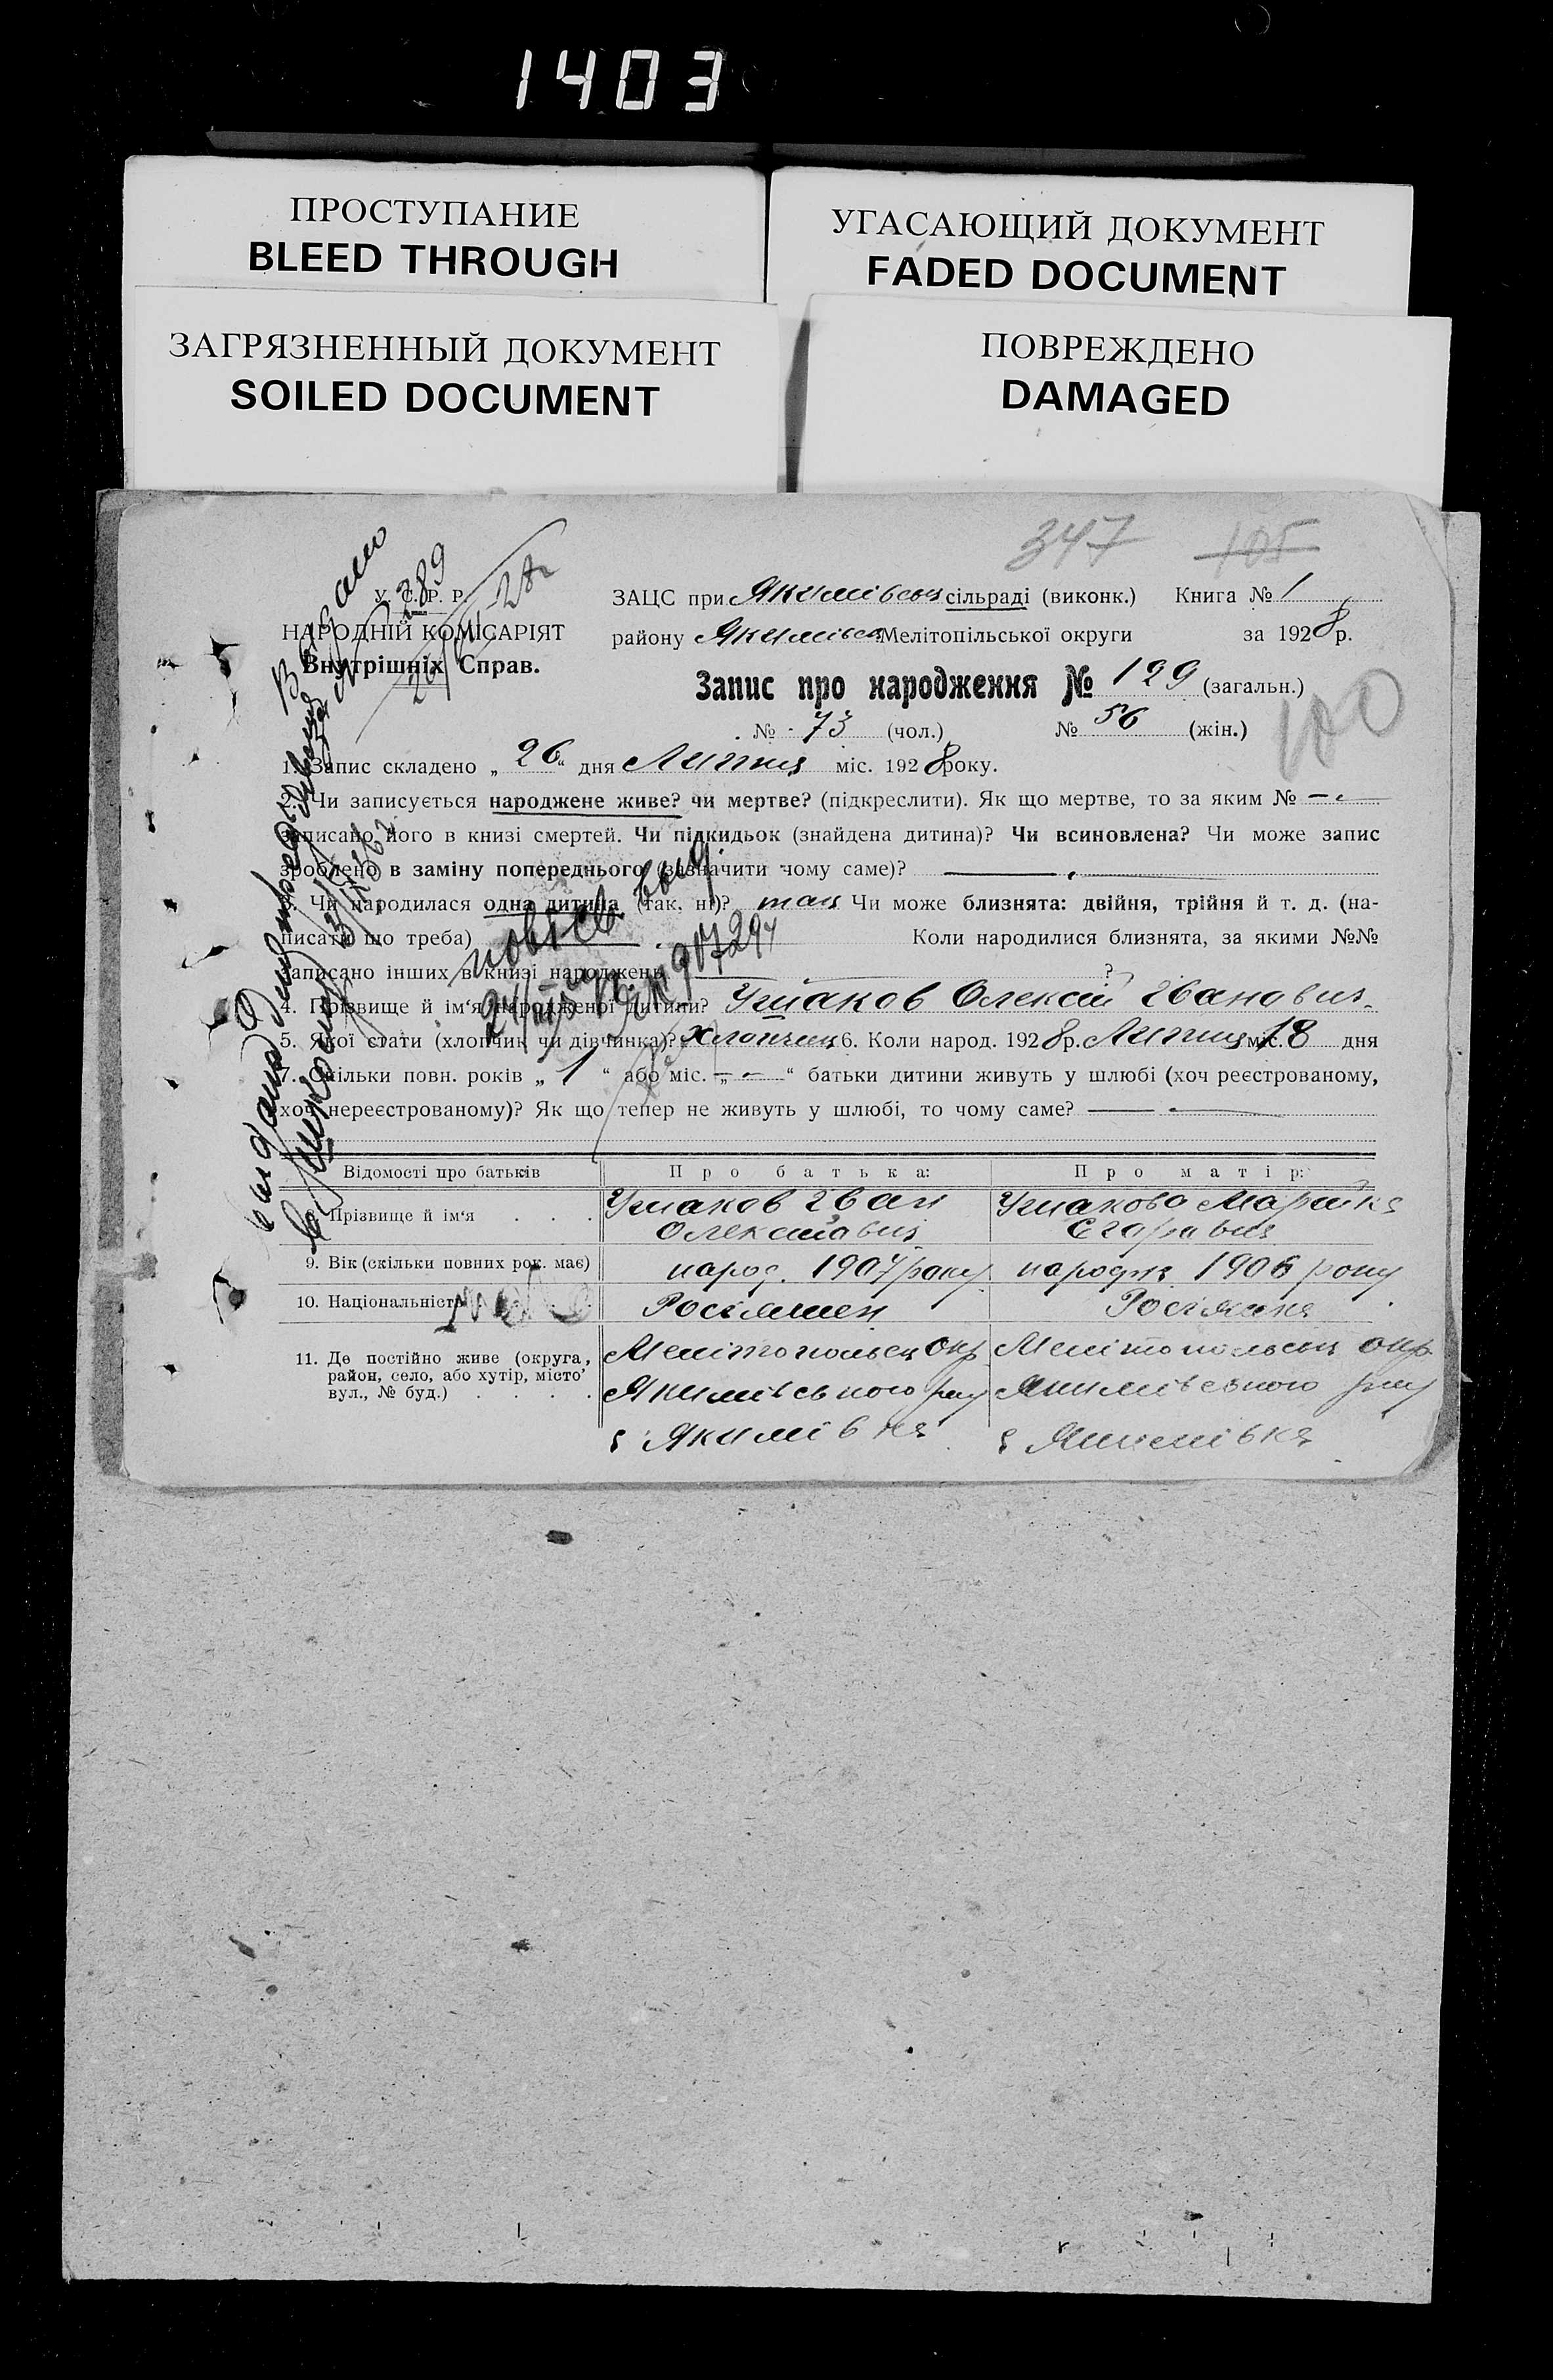 1403
ПРОСТУПАНИЕ
BLEED THROUGH
УГАСАЮЩИЙ ДОКУМЕНТ
FADED DOCUMENT
ЗАГРЯЗНЕННЫЙ ДОКУМЕНТ
SOILED DOCUMENT
ПОВРЕЖДЕНО
DAMAGED
347 105
У. С. Р. Р.
НАРОДНІЙ КОМІСАРІЯТ
Внутрішніх Справ.
ЗАЦС при Якимівськ сільраді (виконк.) Книга № 1
району Якимівськ Мелітопільської округи за 1928 р.
Запис про народження № 129 (загальн.)
№ 73 (чол.) № 56 (жін.)
100
1. Запис складено „ 26 “ дня Липня міс. 1928 року.
2. Чи записується народжене живе? чи мертве? (підкреслити). Як що мертве, то за яким № —
записано його в книзі смертей. Чи підкидьок (знайдена дитина)? Чи всиновлена? Чи може запис
зроблено в заміну попереднього (зазначити чому саме)? —
3. Чи народилася одна дитина (так, ні)? так Чи може близнята: двійня, трійня й т. д. (на-
писати що треба) Коли народилися близнята, за якими №№
записано інших в книзі народжень ?
4. Прізвище й ім'я народженої дитини? Ушаков Олексій Іванович
5. Якої стати (хлопчик чи дівчинка)? Хлопчик 6. Коли народ. 1928 р. Липня міс. 18 дня
7. Скільки повн. років „ 1 “ або міс. „ — “ батьки дитини живуть у шлюбі (хоч реєстрованому,
хоч нереєстрованому)? Як що тепер не живуть у шлюбі, то чому саме? —
Відомості про батьків Про батька: Про матір:
8. Прізвище й ім'я . . . Ушаков Іван Ушакова
Єгоровна
9. Вік (скільки повних рок. має) народ. 1907 року народж 1906 року
10. Національність Росіянин Росіянка
11. Де постійно живе (округа, район, село, або хутір, місто, вул., № буд.) . . . . Мелітопольськ Окр Мелітопольськ окр
Якимівського рну Якимівського рну
с Якимівка с Якимівка